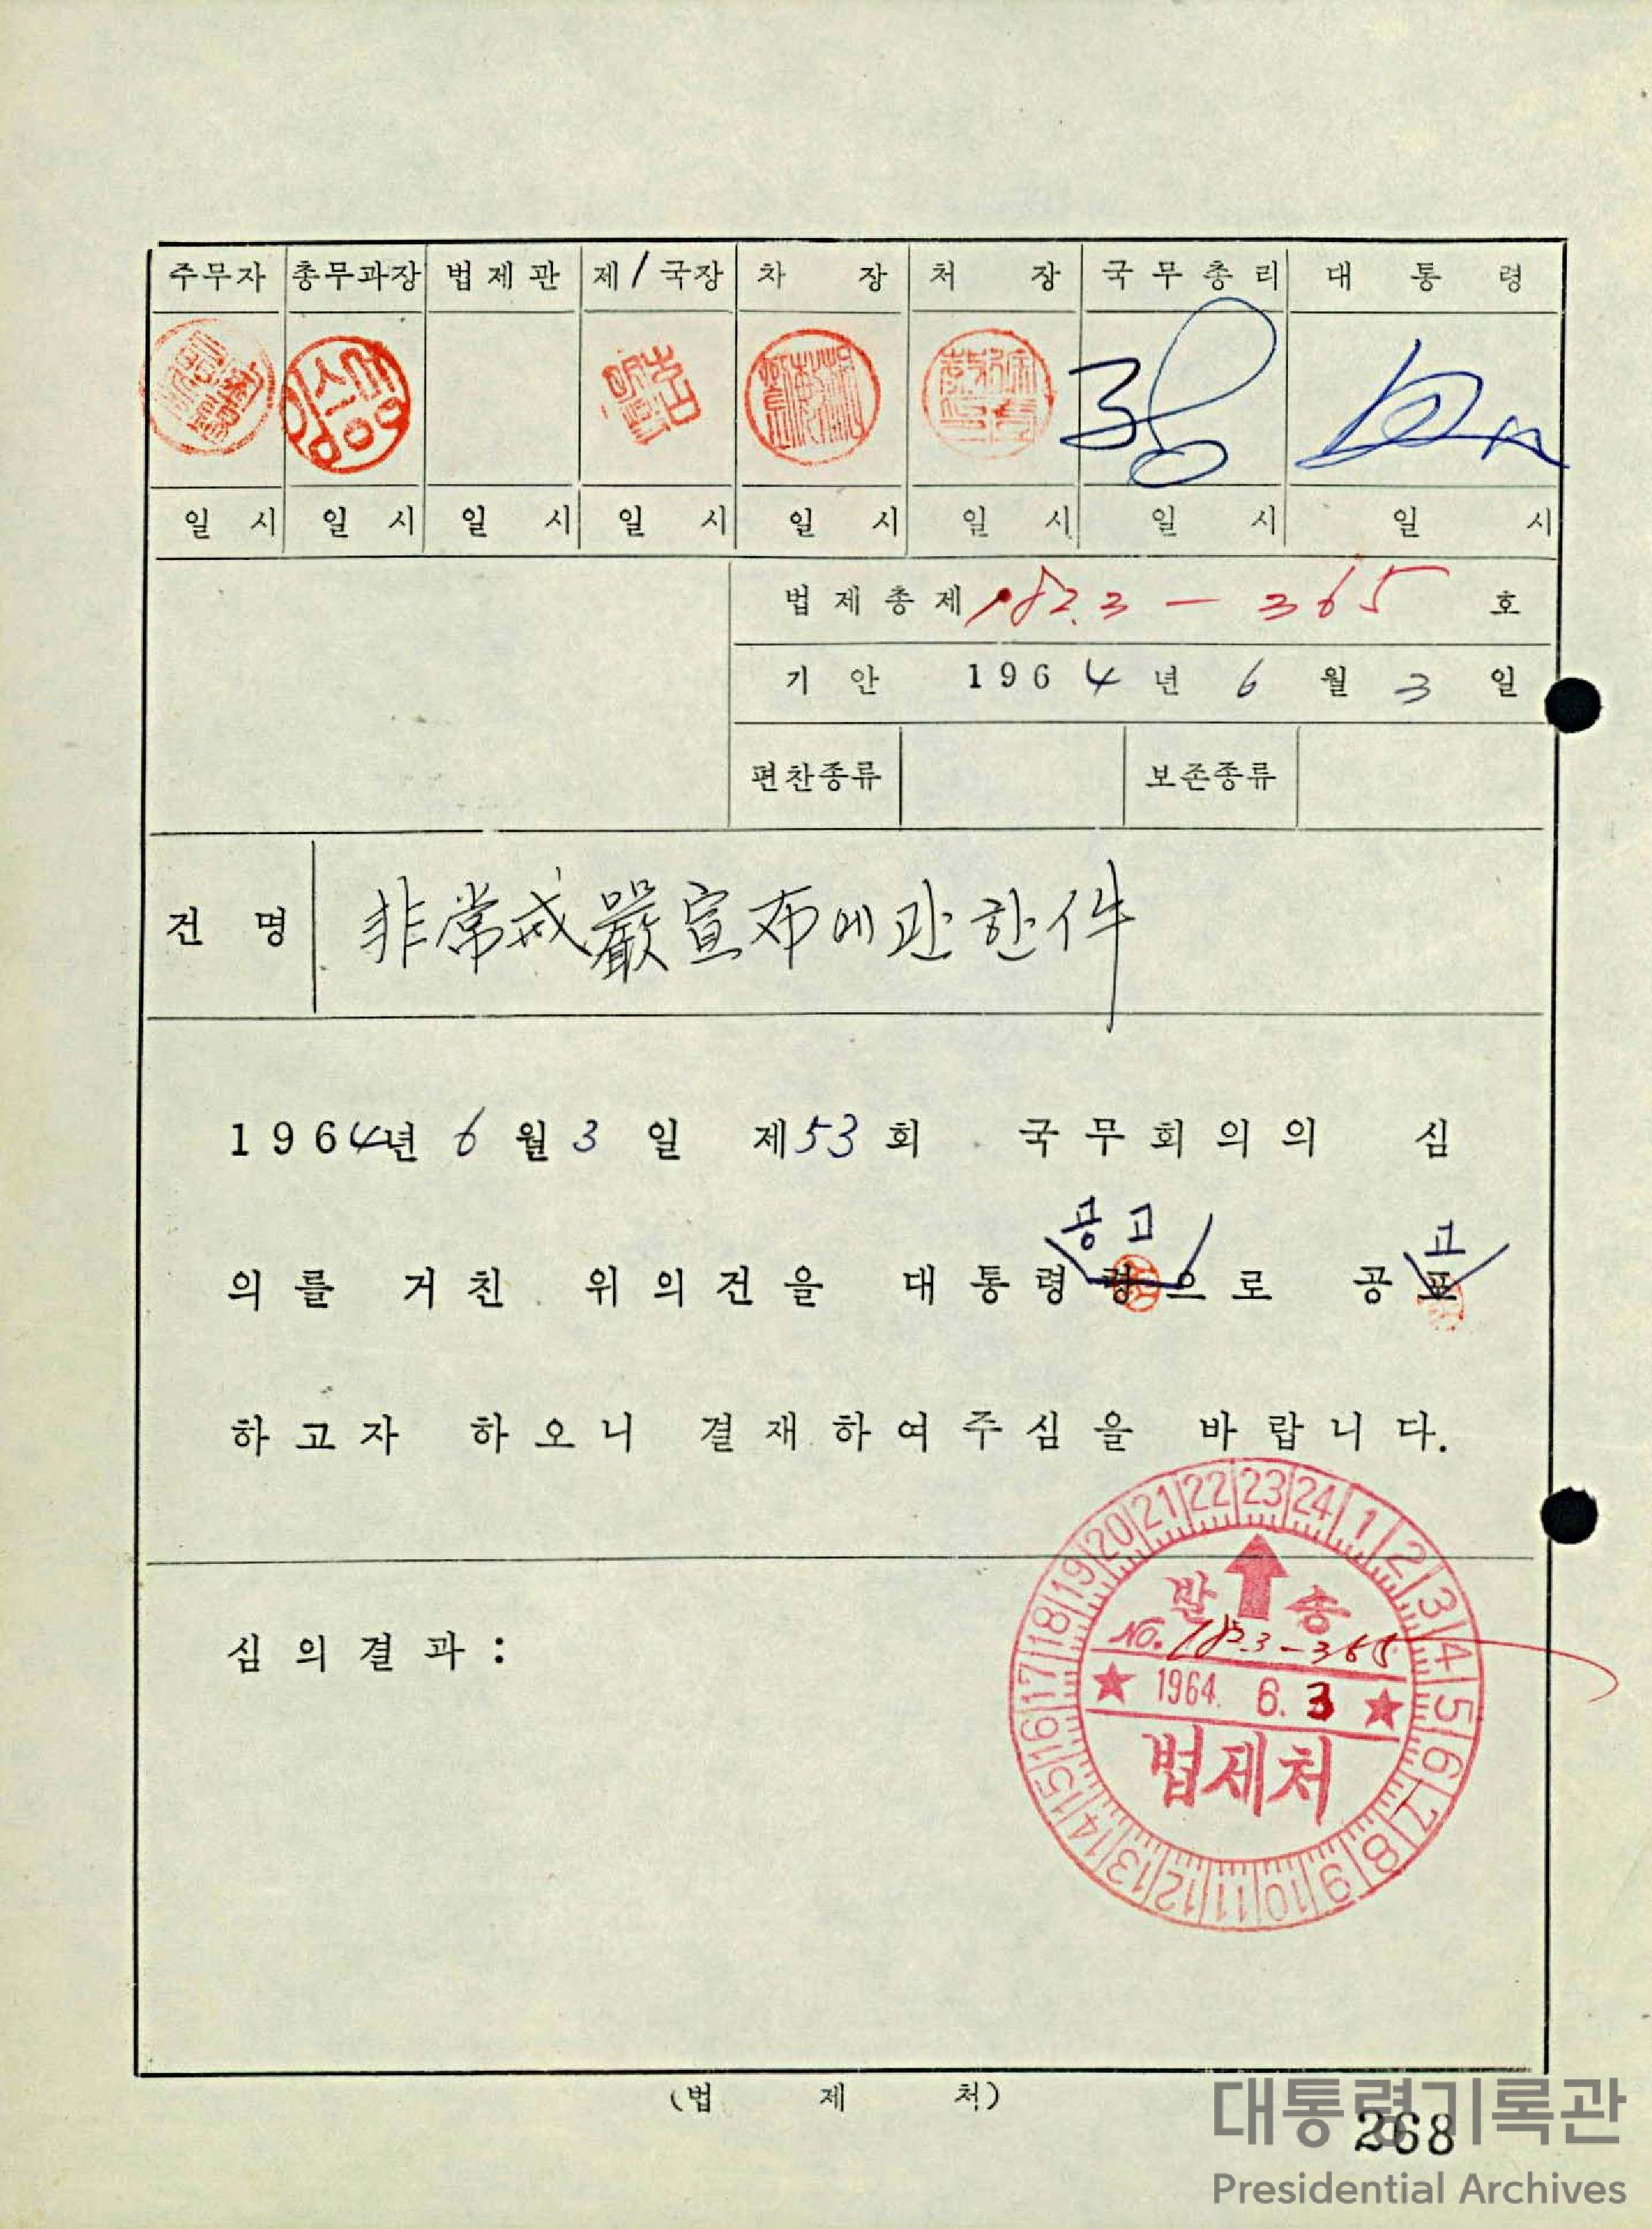 주무자 총무과장 법제관 제/국장 차 장 처 장 국무총리 대 통 령
일 시 일 시 일 시 일 시 일 시 일 시 일 시 일 시
법제총제 182.3 - 365 호
기 안 1964년 6월 3일
편찬종류 보존종류
건 명 非常戒嚴宣布에관한件
1964년 6월 3일 제53회 국무회의의 심
공고 고
의를 거친 위의건을 대통령령으로 공포
하고자 하오니 결재하여주심을 바랍니다.
심의결과 :
21 22 23 24 1 2 3 4 5 6 7 8 9 10 11 12 13 14 15 16 17 18 19 20
발 송
NO. 182.3-365
★ 1964. 6. 3 ★
법제처
(법 제 처)
대통령기록관
268
Presidential Archives